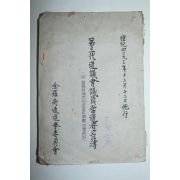 檀紀四二九三年十二月十二日施行
第三代道議會議員當選者名簿
全羅南道選擧委員會